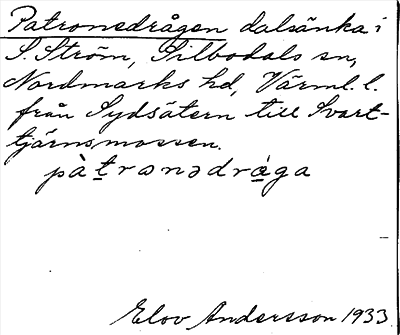 Patronedrågen dalsänka i
S. Ström, Silbodals sn,
Nordmarks hd, Värml. l.
från Sydsätern till Svart-
tjärnsmossen.
pàtronədrå̀ga
Elov Andersson 1933